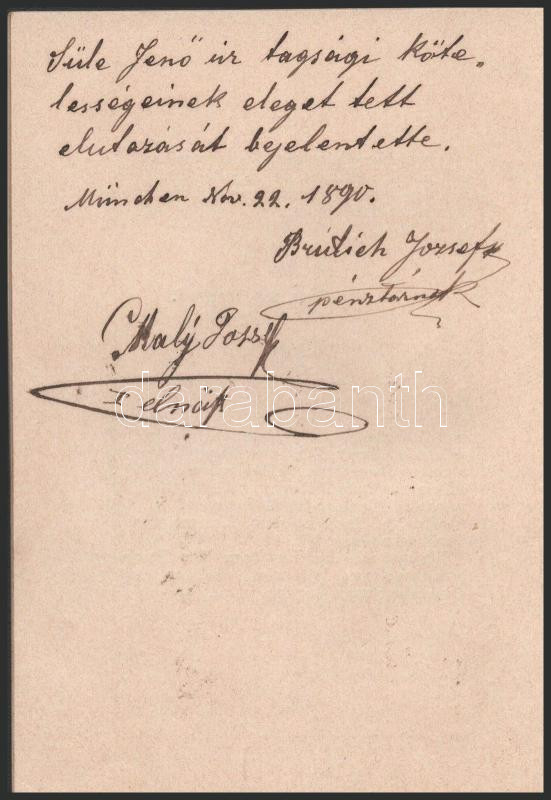 Süle Jenő úr tagsági köte„
lességeinek eleget tett
elutazását bejelentette.
München Nov. 22. 1890.
József
pénztárnok
Malý
elnök
darabanth